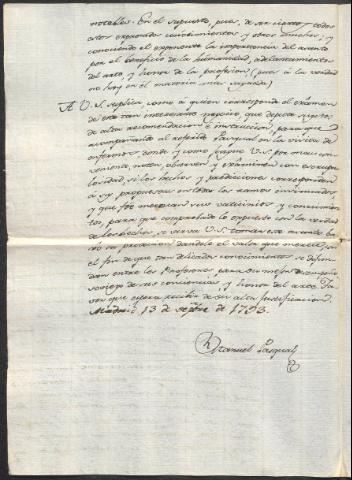 notables. En el supuesto, pues, de ser ciertos todos
estos expresados conocimientos y otros muchos; y
conociendo el exponente la importancia del asunto
por el beneficio de la humanidad, adelantamientos
del arte, y honor de la profesion (pues à la verdad
no hay en el materia mas
A V.S. suplica, como à quien corresponde el examen
de este tan interesante negocio, que depute sugetos
de alta recomendacion è instruccion, para que
acompañando al referido Pasqual en la visita de
enfermos donde y como guste V.S. por mas con-
veniente, noten, observen y examinen con escrupu-
losidad, si los hechos y predicciones corresponden
à su propuesta en todos los ramos insinuados,
y que fee merezcan sus vaticinios y conocimien-
tos, para que comprobado lo expuesto con la verdad
de los hechos, se sirva V.S. tomar este asunto ba-
xo su proteccion dandole el valor que merece, con
el fin de que tan delicados conocimientos se difun-
dan entre los Profesores para su mejor desempeño,
sosiego de sus conciencias y honor del arte. Fa-
vor que espera recibir de su alta justificacion.
Madrid, 13 de Septre de 1793.
Manuel Pasqual